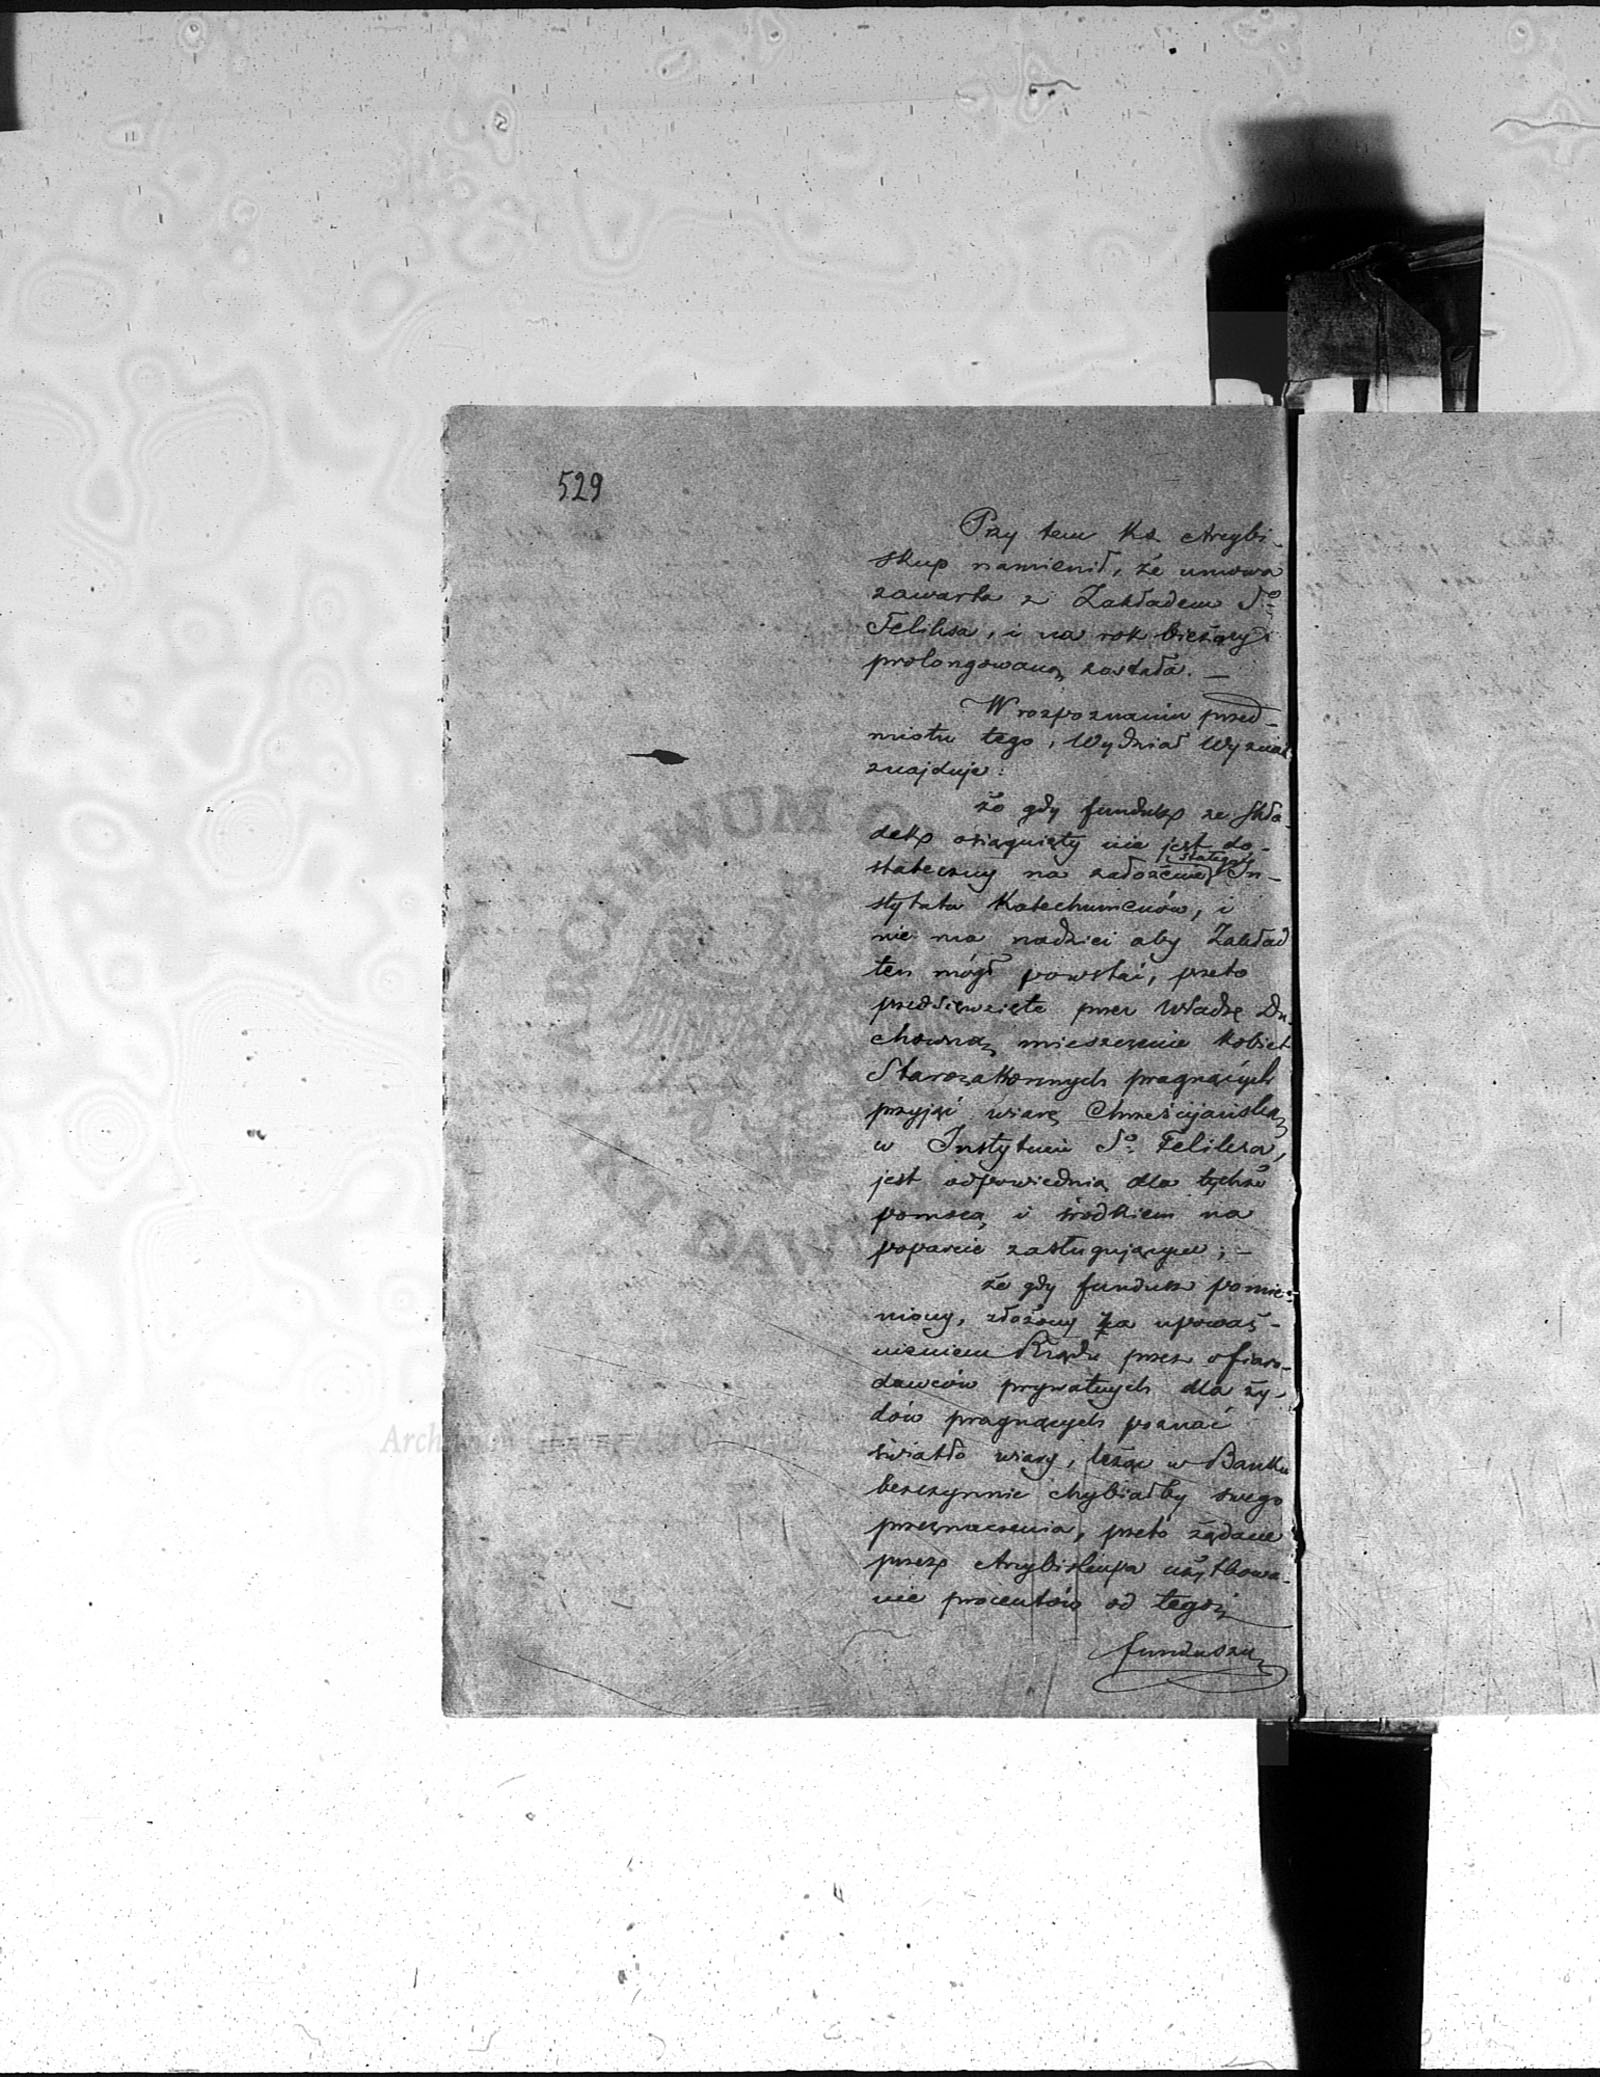 529
Przy tem Ks Arcybi-
skup namienił, że umowa
zawarta z Zakładem Sº
Felixa, i na rok bieżący
prolongowaną została. —
W rozpoznaniu przed-
miotu tego, Wydział Wyznań
znajduje:
że gdy fundusz ze skła-
dek osiągnięty nie jest do-
stateczny na założenie stałego In-
stytutu Katechumenów, i
nie ma nadziei aby Zakład
ten mógł powstać, przeto
przedsięwzięte przez Władzę Du-
chowną mieszczenie kobiet
Starozakonnych pragnących
przyjąć wiarę Chrześcijańską
w Instytucie Sº Felixa,
jest odpowiednią dla tychże
pomocą i środkiem na
poparcie zasługującym; —
że gdy fundusz pomie-
niony, złożony za upoważ-
nieniem Rządu przez ofiaro-
dawców prywatnych dla ży-
dów pragnących poznać
światło wiary, leżąc w Banku
bezczynnie chybiałby swego
przeznaczenia, przeto żądane
przez Arcybiskupa użytkowa-
nie procentów od tegoż
funduszu